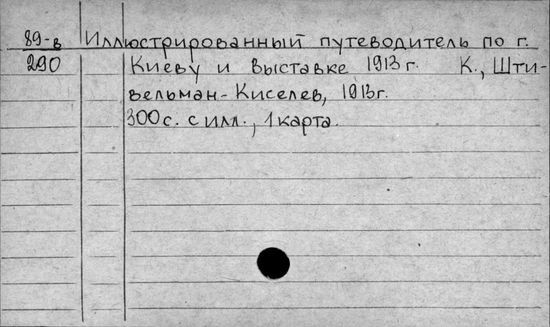 89-в Иллюстрированный путеводитель по г.
290 Киеву и выставке 1913 г. К., Шти-
вельман-Киселев, 1913г.
300 с. с илл., 1 карта.